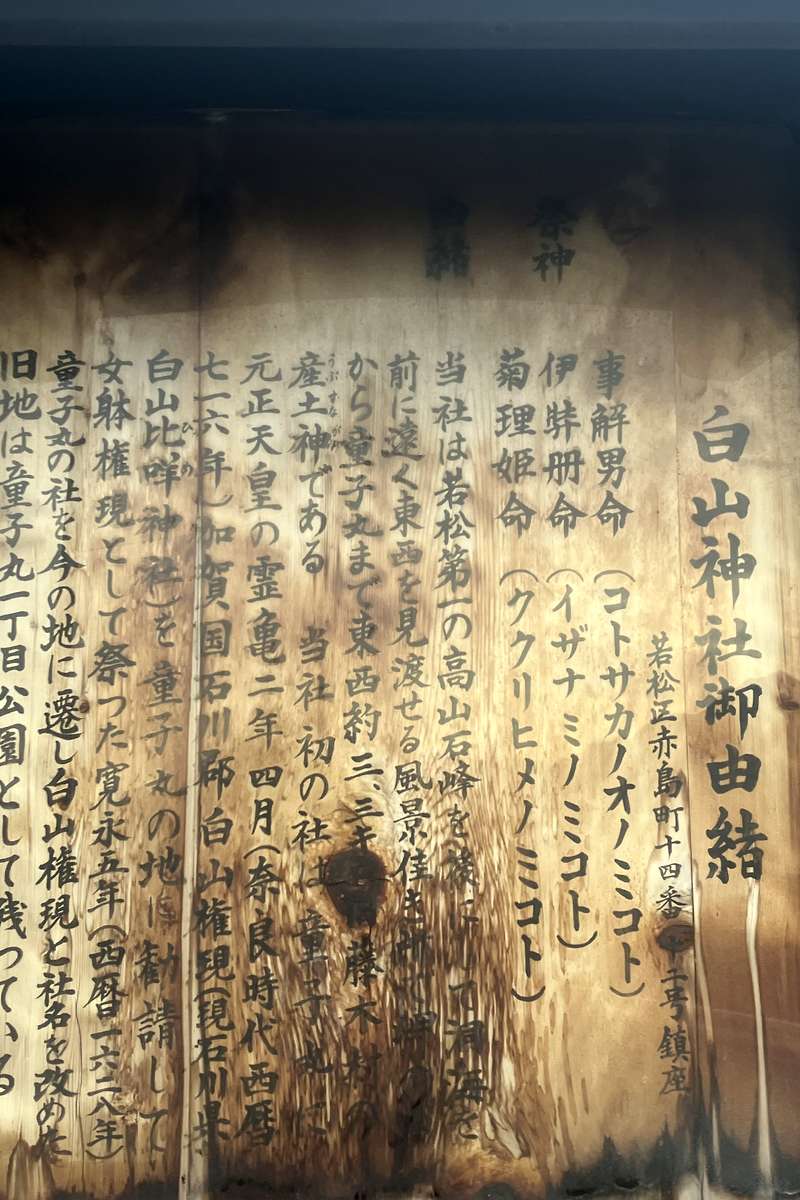 白山神社御由緒
若松区赤島町十四番十二号鎮座
祭神
事解男命(コトサカノオノミコト)
伊弉册命(イザナミノミコト)
菊理姫命(ククリヒメノミコト)
由緒
当社は若松第一の高山石峰を後にして洞海を
前に遠く東西を見渡せる風景佳き所で
から童子丸まで東西約三、三キロ 藤木村の
産土神である 当社初の社は童子丸に
うぶすながみ
元正天皇の霊亀二年四月(奈良時代西暦
七一六年)加賀国石川郡白山権現(現石川県
白山比咩神社)を童子丸の地に勧請して
ひめ
女躰権現として祭つた寛永五年(西暦一六二八年)
童子丸の社を今の地に遷し白山権現と社名を改めた
旧地は童子丸一丁目公園として残つている